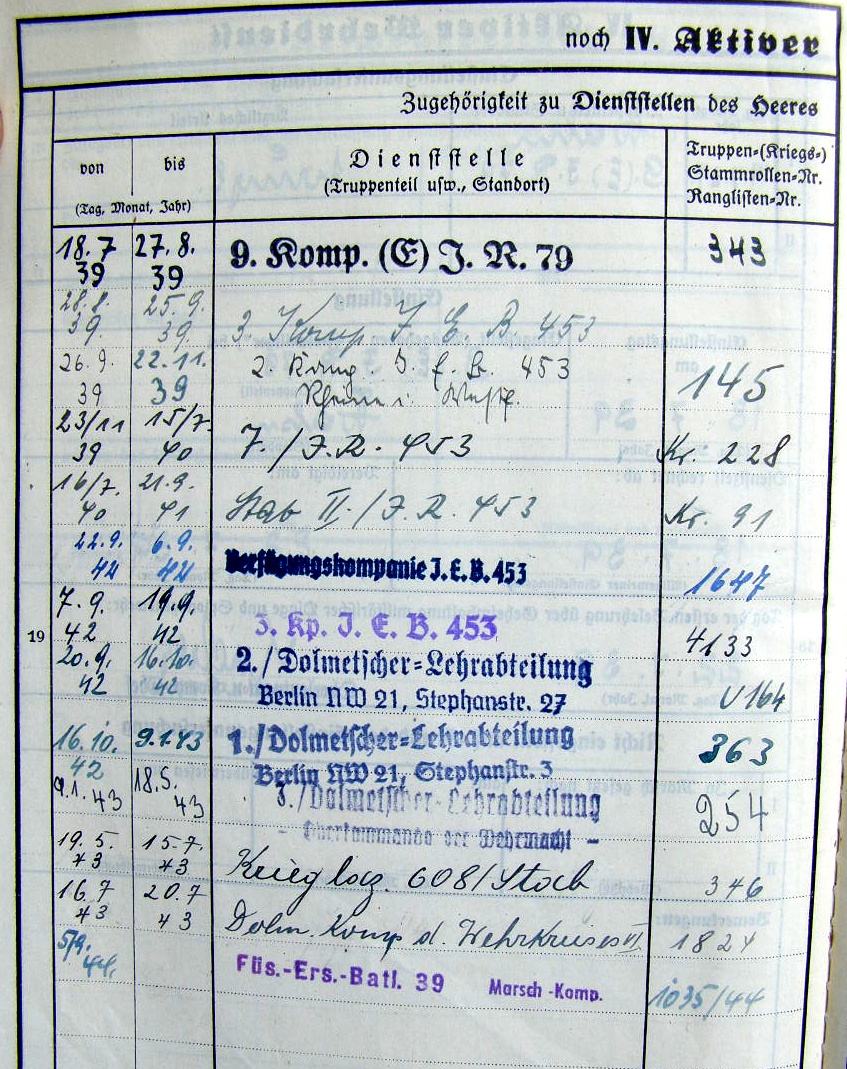 noch IV. Aktiver
Zugehörigkeit zu Dienststellen des Heeres
von bis Dienststelle Truppen-(Kriegs-)
(Truppenteil usw., Standort) Stammrollen-Nr.
(Tag, Monat, Jahr) Ranglisten-Nr.
18.7 27.8. 9. Komp. (E) J. R. 79 343
39 39
28.8. 25.9. 3 Komp J. E. B 453
39. 39.
26.9. 22.11. 2. Komp. J. E. B. 453 145
39 39 Rheine i. Westf.
23/11 15/7. 7. / J.R. 453 Kr. 228
39 40
16/7. 21.9. Stab II. / J.R. 453 Kr. 91
40 41
22.9. 6.9. Verfügungskompanie J. E. B. 453 1647
42
7.9. 19.9. 3. Kp. J. E. B. 453 4133
19 42 42
20.9. 16.10. 2./Dolmetscher=Lehrabteilung U 164
42 42 Berlin NW 21, Stephanstr. 27
16.10. 9.1.43 1./Dolmetscher=Lehrabteilung 363
42 Berlin NW 21, Stephanstr. 3
9.1.43 18.5. 3./Dolmetscher-Lehrabteilung 254
43 - Oberkommando der Wehrmacht -
19.5. 15.7. Krieglaz. 608/Stab 346
43 43
16.7 20.7 Dolm. Komp d. Wehrkreises VI 1824
43 43
5/9. Füs.-Ers.-Batl. 39 Marsch-Komp. 1035/44
44.